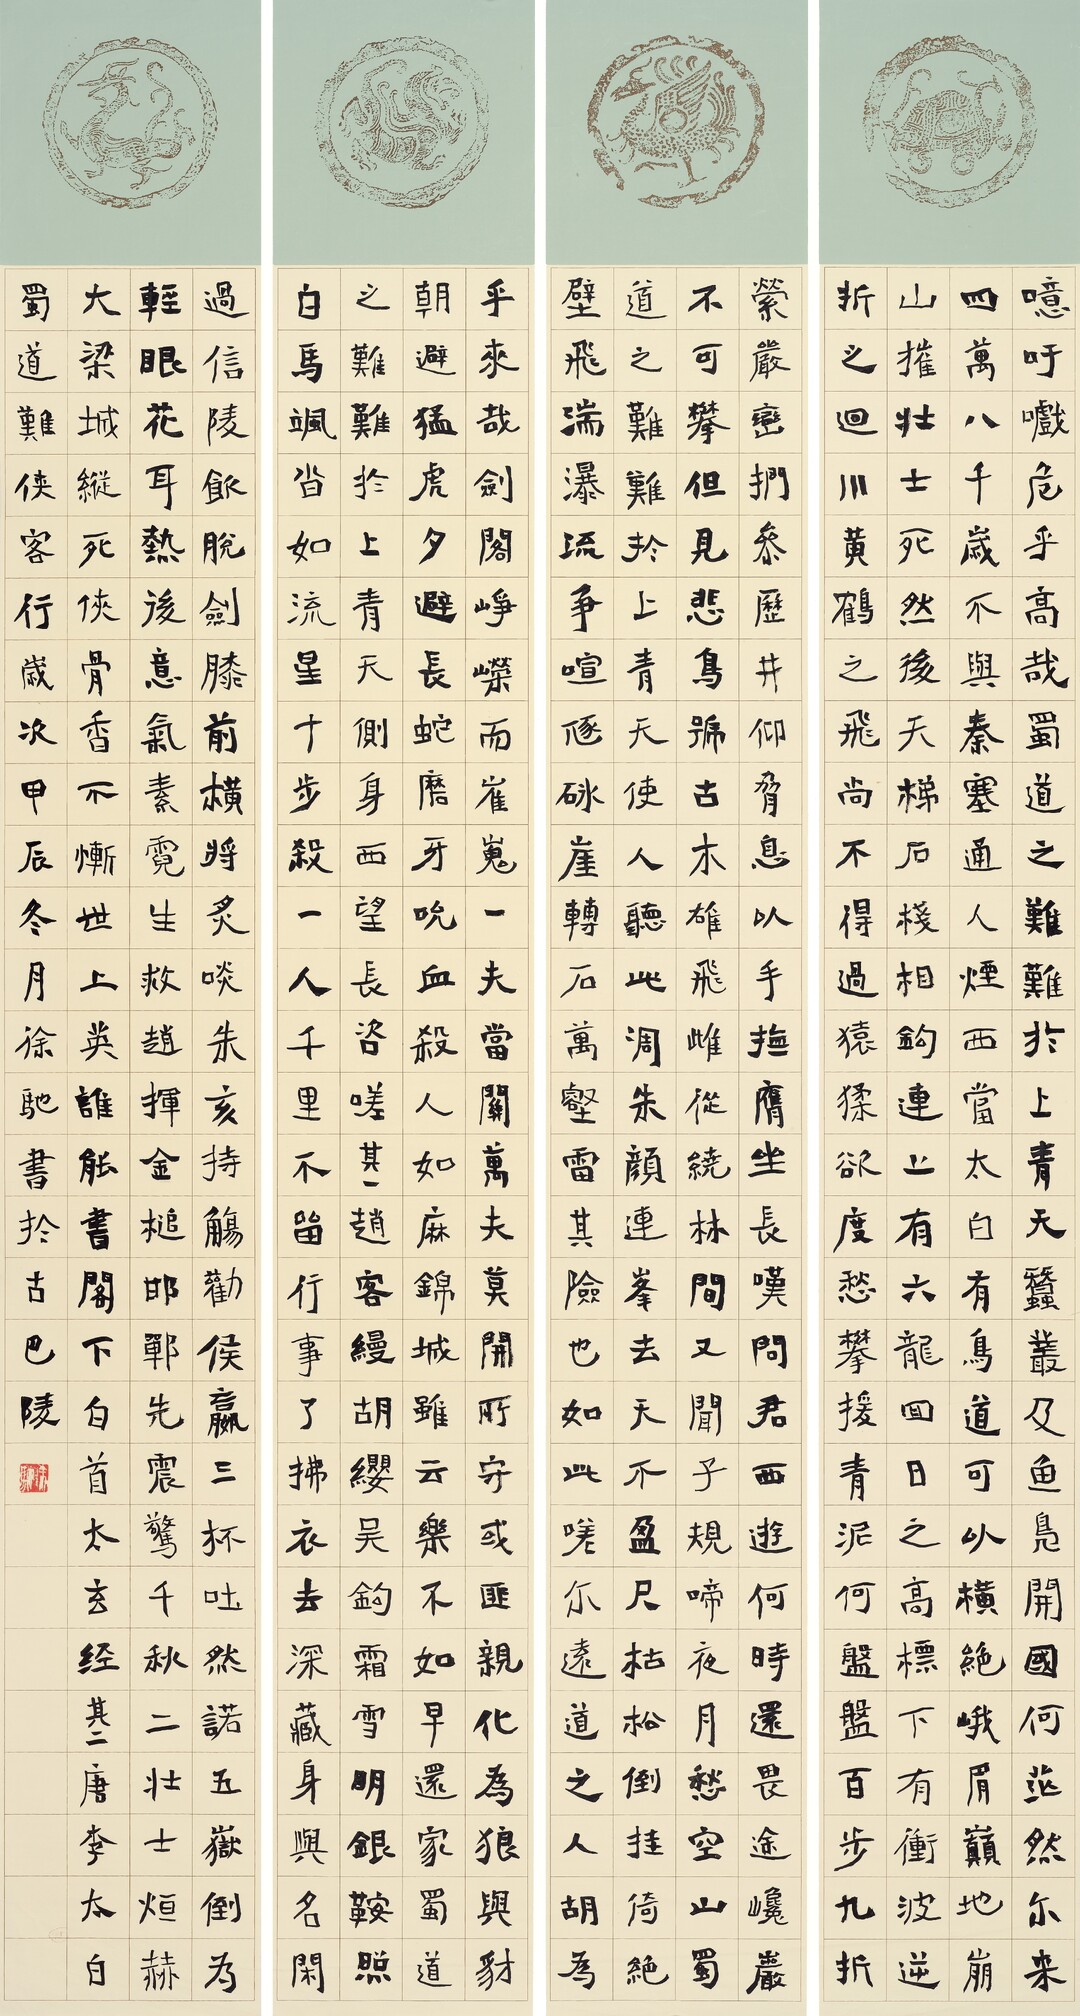 噫吁嚱危乎高哉蜀道之難難於上青天蠶叢及魚鳧開國何茫然尔来
四萬八千歲不與秦塞通人煙西當太白有鳥道可以橫絕峨眉巔地崩
山摧壯士死然後天梯石棧相鈎連上有六龍回日之高標下有衝波逆
折之迴川黃鶴之飛尚不得過猿猱欲度愁攀援青泥何盤盤百步九折
縈巖巒捫參歷井仰脅息以手撫膺坐長嘆問君西遊何時還畏途巉巖
不可攀但見悲鳥號古木雄飛雌從繞林間又聞子規啼夜月愁空山蜀
道之難難於上青天使人聽此凋朱顏連峯去天不盈尺枯松倒挂倚絕
壁飛湍瀑流爭喧豗砯崖轉石萬壑雷其險也如此嗟尔遠道之人胡為
乎來哉劍閣崢嶸而崔嵬一夫當關萬夫莫開所守或匪親化為狼與豺
朝避猛虎夕避長蛇磨牙吮血殺人如麻錦城雖云樂不如早還家蜀道
之難難於上青天側身西望長咨嗟其一趙客縵胡纓吳鈎霜雪明銀鞍照
白馬颯沓如流星十步殺一人千里不留行事了拂衣去深藏身與名閑
過信陵飲脫劍膝前橫將炙啖朱亥持觴勸侯嬴三杯吐然諾五嶽倒為
輕眼花耳熱後意氣素霓生救趙揮金槌邯鄲先震驚千秋二壯士烜赫
大梁城縱死俠骨香不慚世上英誰能書閣下白首太玄经其二唐李太白
蜀道難俠客行歲次甲辰冬月徐馳書於古巴陵